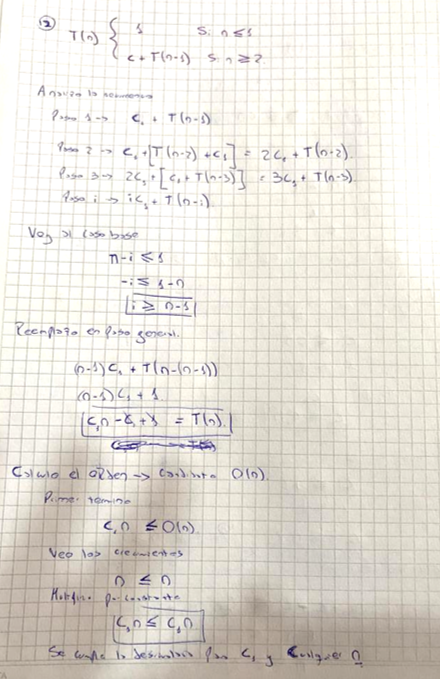 ② T(n) { 1 Si n ≤ 1
c + T(n-1) Si n ≥ 2
Analizo la recurrencia
Paso 1 → c₁ + T(n-1)
Paso 2 → c₁ + [T(n-2) + c₁] = 2c₁ + T(n-2).
Paso 3 → 2c₁ + [c₁ + T(n-3)] = 3c₁ + T(n-3)
Paso i → ic₁ + T(n-i)
Voy al caso base
n-i ≤ 1
-i ≤ 1-n
i ≥ n-1
Reemplazo en paso general.
(n-1)c₁ + T(n-(n-1))
(n-1)c₁ + 1
c₁n - c₁ + 1 = T(n).
Calculo el orden → O(n).
Primer termino
c₁n ≤ O(n).
Veo los crecimientos
n ≤ n
Multiplico por constante
c₁n ≤ c₁n
Se cumple la desigualdad para c₁ y cualquier n